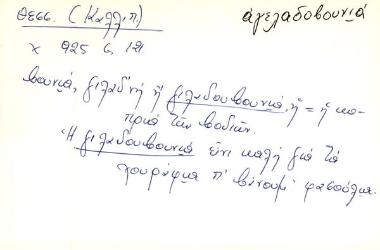 Θεσσ. (Καλλιπ.) αγελαδοβουνιά
χ 925 σ. 19.
βουνιά, γιλαδ'νή ή γιλαδουβουνιά, η = η κο-
πριά των βοδιών.
Ἡ γιλαδουβουνιά είνι καλή για τα
χουράφια π' βάνουμ' φασούλια.